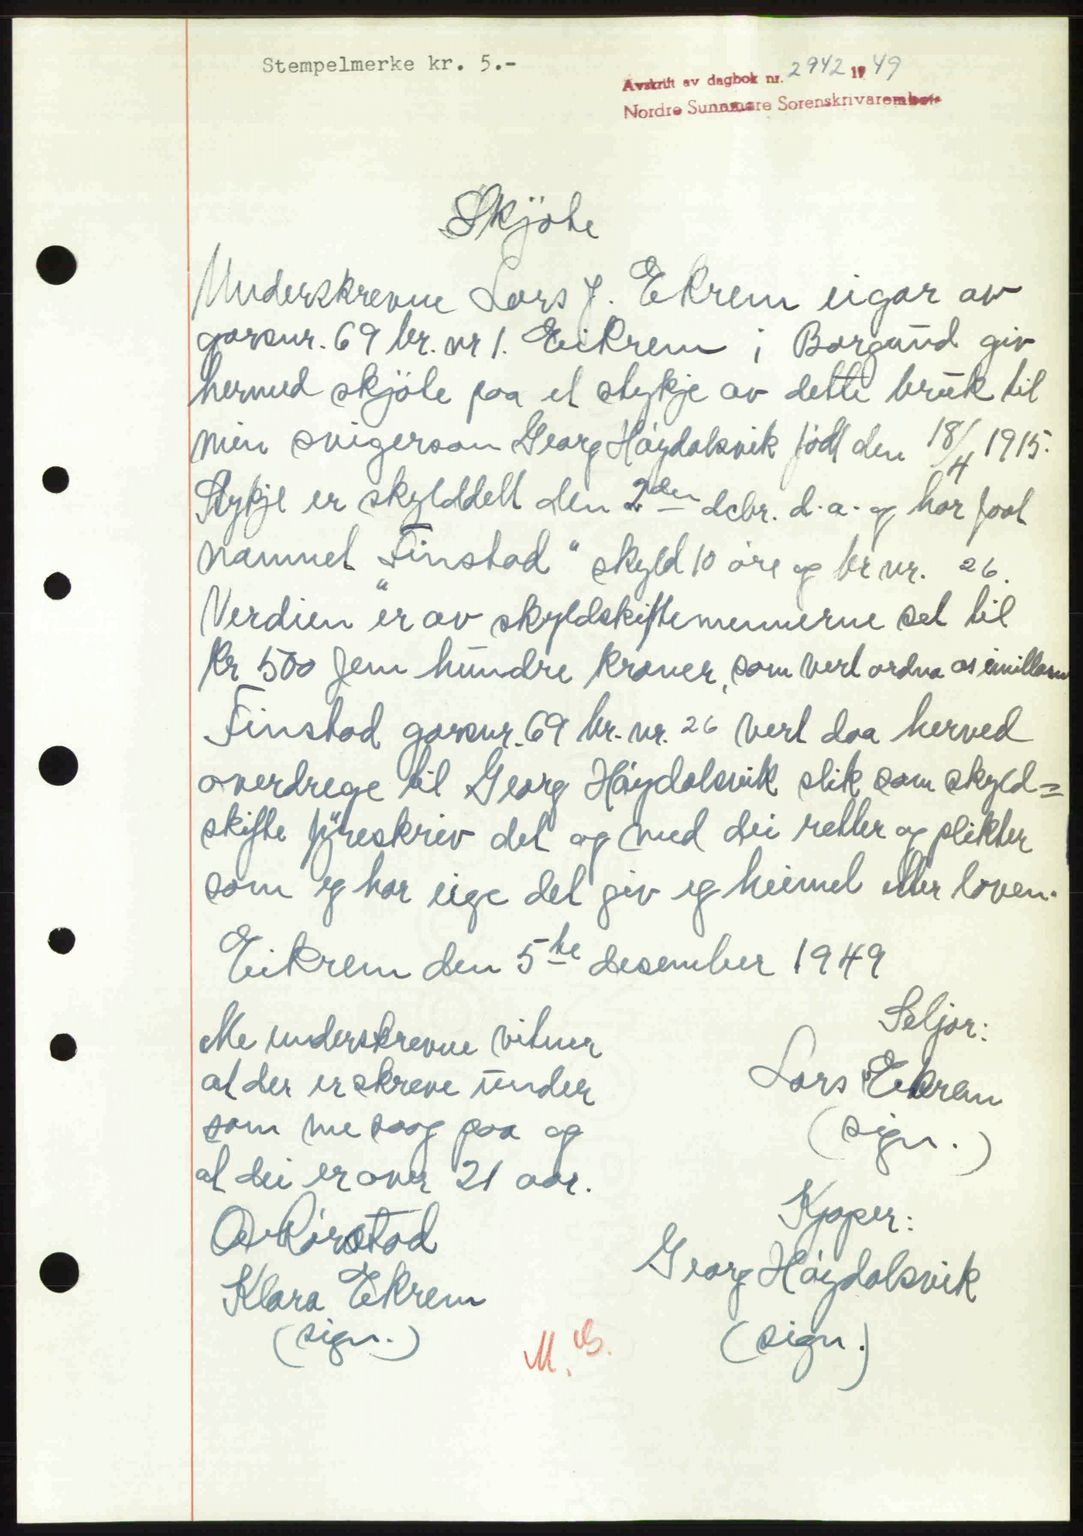 Stempelmerke kr. 5.-
Avskrift av dagbok nr. 2942 1949
Nordre Sunnmøre Sorenskrivarembete
Skjøte
Underskrevne Lars J. Ekrem eigar av
garsnr. 69 br. nr 1. Eikrem i Borgund giv
hermed skjöte paa et stykje av dette bruk til
min svigerson Georg Høydalsvik født den 18/4 1915.
Stykje er skylddelt den 2den dcbr. d.a. og har faat
namnet "Finstad" skyld 10 øre og br nr. 26.
Verdien er av skyldskiftemennerne set til
kr 500 fem hundre kroner, som vert ordna os imillom
Finstad garsnr. 69 br. nr. 26 vert daa herved
overdrege til Georg Høydalsvik slik som skyld=
skifte föreskriv det og med dei retter og plikter
som eg har eige det giv eg heimel etter loven.
Eikrem den 5te desember 1949
Me underskrevne vitner
at der er skreve under
som me saag paa og
at dei er over 21 aar.
Rørstad
Klara Ekrem
(sign.)
Seljar:
Lars Eikrem
(sign.)
Kjøper:
Georg Høydalsvik
(sign.)
M.B.